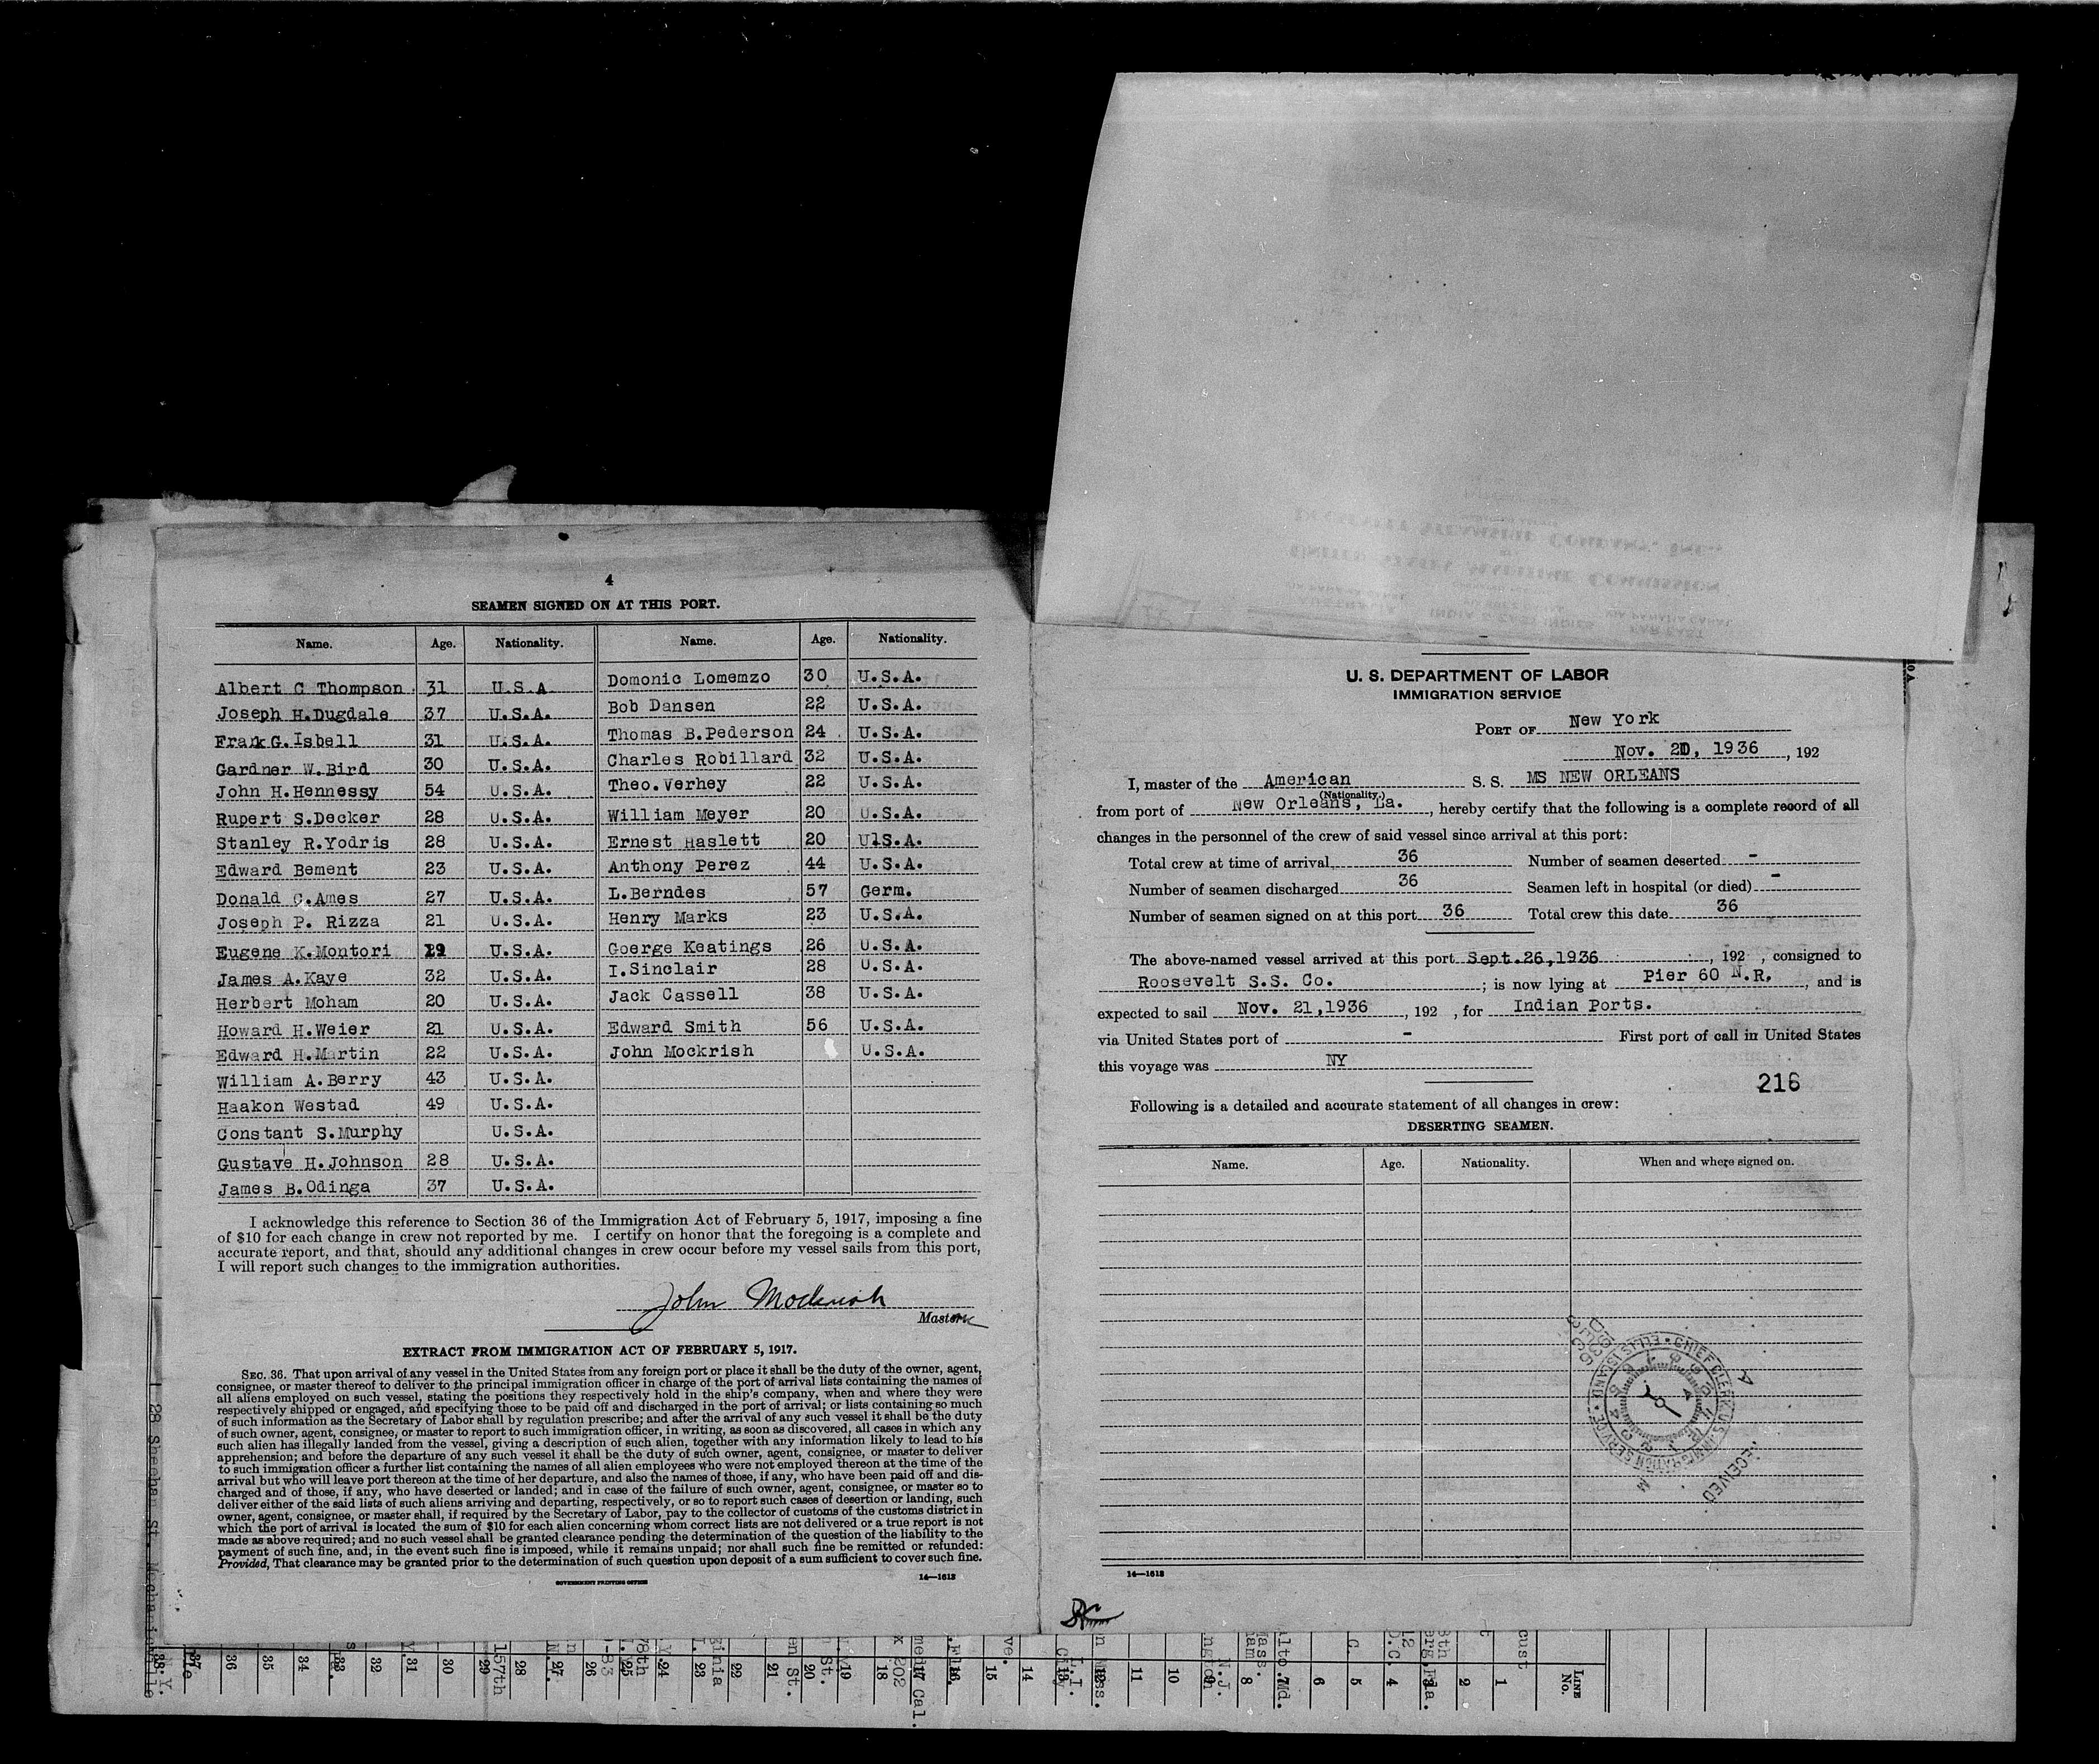 4
SEAMEN SIGNED ON AT THIS PORT.
Name. Age. Nationality. Name. Age. Nationality.
Albert C Thompson 31 U.S.A Domonic Lomemzo 30 U.S.A.
Joseph H.Dugdale 37 U.S.A. Bob Dansen 22 U.S.A.
Frank G.Isbell 31 U.S.A. Thomas B.Pederson 24 U.S.A.
Gardner W.Bird 30 U.S.A. Charles Robillard 32 U.S.A.
John H.Hennessy 54 U.S.A. Theo.Verhey 22 U.S.A.
Rupert S.Decker 28 U.S.A. William Meyer 20 U.S.A.
Stanley R.Yodris 28 U.S.A. Ernest Haslett 20 UlS.A.
Edward Bement 23 U.S.A. Anthony Perez 44 U.S.A.
Donald C.Ames 27 U.S.A. L.Berndes 57 Germ.
Joseph P. Rizza 21 U.S.A. Henry Marks 23 U.S.A.
Eugene K.Montori U.S.A. Goerge Keatings 26 U.S.A.
James A.Kaye 32 U.S.A. I.Sinclair 28 U.S.A.
Herbert Moham 20 U.S.A. Jack Cassell 38 U.S.A.
Howard H.Weier 21 U.S.A. Edward Smith 56 U.S.A.
Edward H.Martin 22 U.S.A. John Mockrish U.S.A.
William A.Berry 43 U.S.A.
Haakon Westad 49 U.S.A.
Constant S.Murphy U.S.A.
Gustave H.Johnson 28 U.S.A.
James B.Odinga 37 U.S.A.
I acknowledge this reference to Section 36 of the Immigration Act of February 5, 1917, imposing a fine
of $10 for each change in crew not reported by me. I certify on honor that the foregoing is a complete and
accurate report, and that, should any additional changes in crew occur before my vessel sails from this port,
I will report such changes to the immigration authorities.
John Mockrish
Master.
EXTRACT FROM IMMIGRATION ACT OF FEBRUARY 5, 1917.
SEC. 36. That upon arrival of any vessel in the United States from any foreign port or place it shall be the duty of the owner, agent,
consignee, or master thereof to deliver to the principal immigration officer in charge of the port of arrival lists containing the names of
all aliens employed on such vessel, stating the positions they respectively hold in the ship's company, when and where they were
respectively shipped or engaged, and specifying those to be paid off and discharged in the port of arrival; or lists containing so much
of such information as the Secretary of Labor shall by regulation prescribe; and after the arrival of any such vessel it shall be the duty
of such owner, agent, consignee, or master to report to such immigration officer, in writing, as soon as discovered, all cases in which any
such alien has illegally landed from the vessel, giving a description of such alien, together with any information likely to lead to his
apprehension; and before the departure of any such vessel it shall be the duty of such owner, agent, consignee, or master to deliver
to such immigration officer a further list containing the names of all alien employees who were not employed thereon at the time of the
arrival but who will leave port thereon at the time of her departure, and also the names of those, if any, who have been paid off and dis-
charged and of those, if any, who have deserted or landed; and in case of the failure of such owner, agent, consignee, or master so to
deliver either of the said lists of such aliens arriving and departing, respectively, or so to report such cases of desertion or landing, such
owner, agent, consignee, or master shall, if required by the Secretary of Labor, pay to the collector of customs of the customs district in
which the port of arrival is located the sum of $10 for each alien concerning whom correct lists are not delivered or a true report is not
made as above required; and no such vessel shall be granted clearance pending the determination of the question of the liability to the
payment of such fine, and, in the event such fine is imposed, while it remains unpaid; nor shall such fine be remitted or refunded:
Provided, That clearance may be granted prior to the determination of such question upon deposit of a sum sufficient to cover such fine.
GOVERNMENT PRINTING OFFICE 14—1613
U. S. DEPARTMENT OF LABOR
IMMIGRATION SERVICE
PORT OF New York
Nov. 20, 1936, 192
I, master of the American S. S. MS NEW ORLEANS
(Nationality.)
from port of New Orleans, La., hereby certify that the following is a complete record of all
changes in the personnel of the crew of said vessel since arrival at this port:
Total crew at time of arrival 36 Number of seamen deserted -
Number of seamen discharged 36 Seamen left in hospital (or died) -
Number of seamen signed on at this port 36 Total crew this date 36
The above-named vessel arrived at this port Sept.26,1936, 192 , consigned to
Roosevelt S.S. Co. ; is now lying at Pier 60 N.R., and is
expected to sail Nov. 21,1936, 192 , for Indian Ports.
via United States port of - First port of call in United States
this voyage was NY
216
Following is a detailed and accurate statement of all changes in crew:
DESERTING SEAMEN.
Name. Age. Nationality. When and where signed on.
CHIEF CLERK U.S. IMMIGRATION SERVICE • ELLIS ISLAND •
RECEIVED
14—1613
28 Sheehan St.
157th
36 35 34 33 32 31 30 29 28 27 26 25 24 23 22 21 20 19 18 17 16 15 14 13 12 11 10 9 8 7 6 5 4 3 2 1
LINE No.